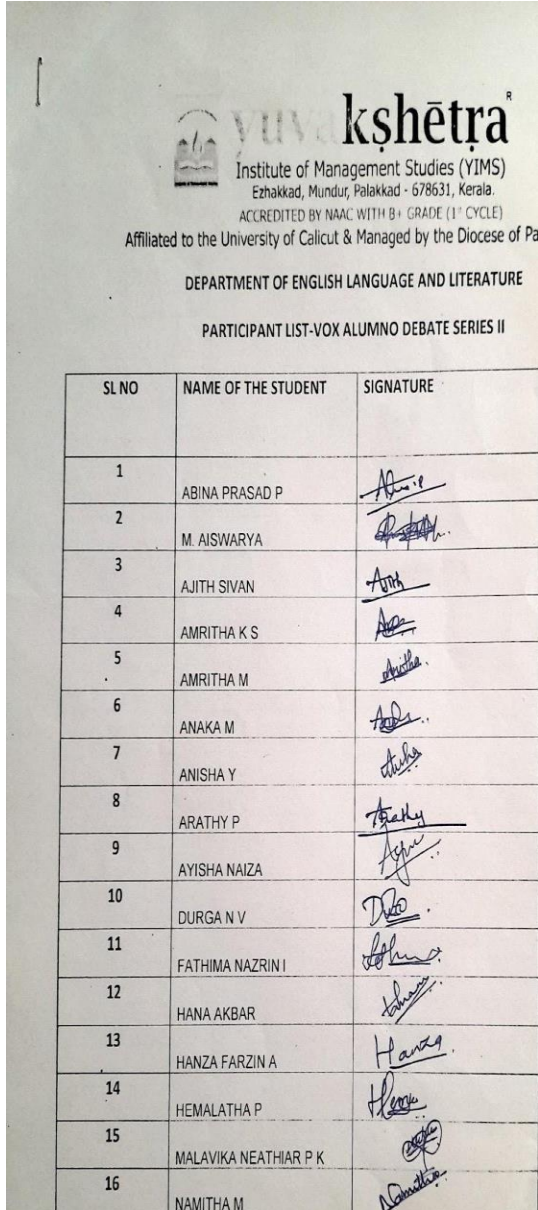 yuvakshētra R
Institute of Management Studies (YIMS)
Ezhakkad, Mundur, Palakkad - 678631, Kerala.
ACCREDITED BY NAAC WITH B+ GRADE (1st CYCLE)
Affiliated to the University of Calicut & Managed by the Diocese of Pa
DEPARTMENT OF ENGLISH LANGUAGE AND LITERATURE
PARTICIPANT LIST-VOX ALUMNO DEBATE SERIES II
SL NO NAME OF THE STUDENT SIGNATURE
1 ABINA PRASAD P
2 M. AISWARYA
3 AJITH SIVAN Ajith
4 AMRITHA K S
5 AMRITHA M Amritha.
6 ANAKA M
7 ANISHA Y
8 ARATHY P Arathy
9 AYISHA NAIZA
10 DURGA N V
11 FATHIMA NAZRIN I
12 HANA AKBAR
13 HANZA FARZIN A Hanza.
14 HEMALATHA P
15 MALAVIKA NEATHIAR P K
16 NAMITHA M Namitha